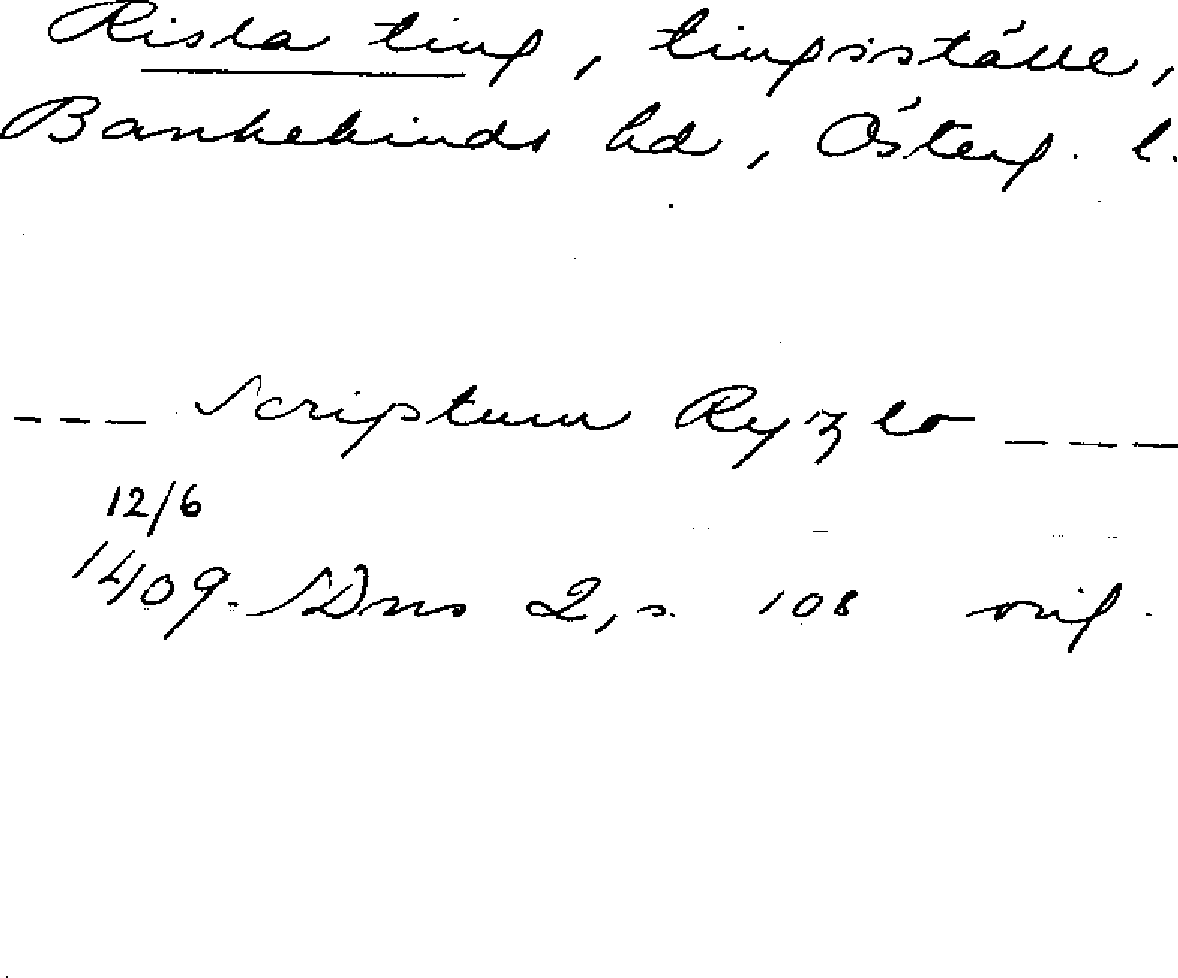 Risla ting, tingsställe,
Bankekinds hd, Österg. l.
--- Scriptum Ryzlo ----
12/6
1409. SDns 2, s. 108 orig.